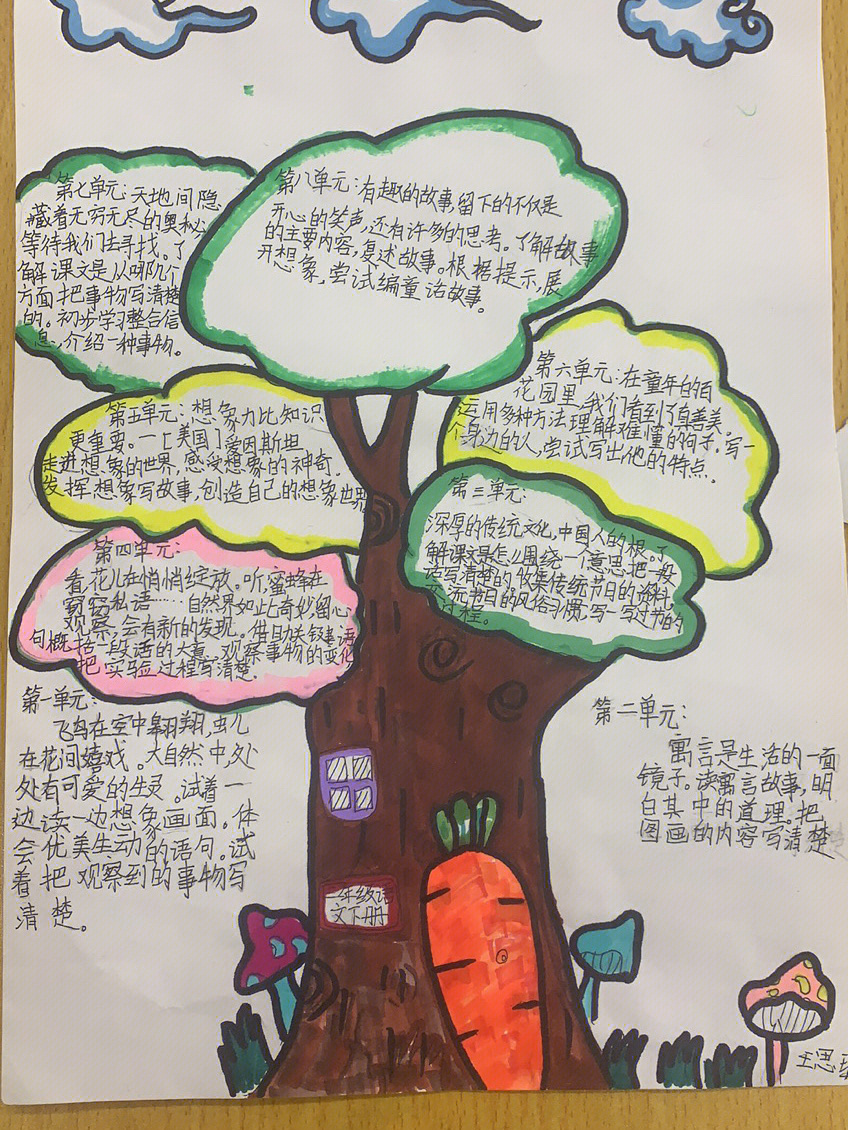 第七单元：天地间隐
藏着无穷无尽的奥秘
等待我们去寻找。了
解课文是从哪几个
方面把事物写清楚
的。初步学习整合信
息，介绍一种事物。
第八单元：有趣的故事，留下的不仅是
开心的笑声，还有许多的思考。了解故事
的主要内容，复述故事。根据提示，展
开想象，尝试编童话故事。
第六单元：在童年的百
花园里，我们看到了真善美。
运用多种方法理解难懂的句子。写一
个身边的人，尝试写出他的特点。
第五单元：想象力比知识
更重要。—[美国]爱因斯坦
走进想象的世界，感受想象的神奇。
发挥想象写故事，创造自己的想象世界
第三单元：
深厚的传统文化，中国人的根。了
解课文是怎么围绕一个意思把一段
话写清楚的收集传统节日的资料，
交流节日的风俗习惯，写一写过节的
过程。
第四单元：
看，花儿在悄悄绽放。听，蜜蜂在
窃窃私语……自然界如此奇妙，留心
观察，会有新的发现。借助关键语
句概括一段话的大意。观察事物的变化，
把实验过程写清楚。
第一单元：
飞鸟在空中翱翔，虫儿
在花间嬉戏。大自然中，处
处有可爱的生灵。试着一
边读一边想象画面。体
会优美生动的语句。试
着把观察到的事物写
清楚。
第二单元：
寓言是生活的一面
镜子。读寓言故事，明
白其中的道理。把
图画的内容写清楚
年级语
文下册
王思